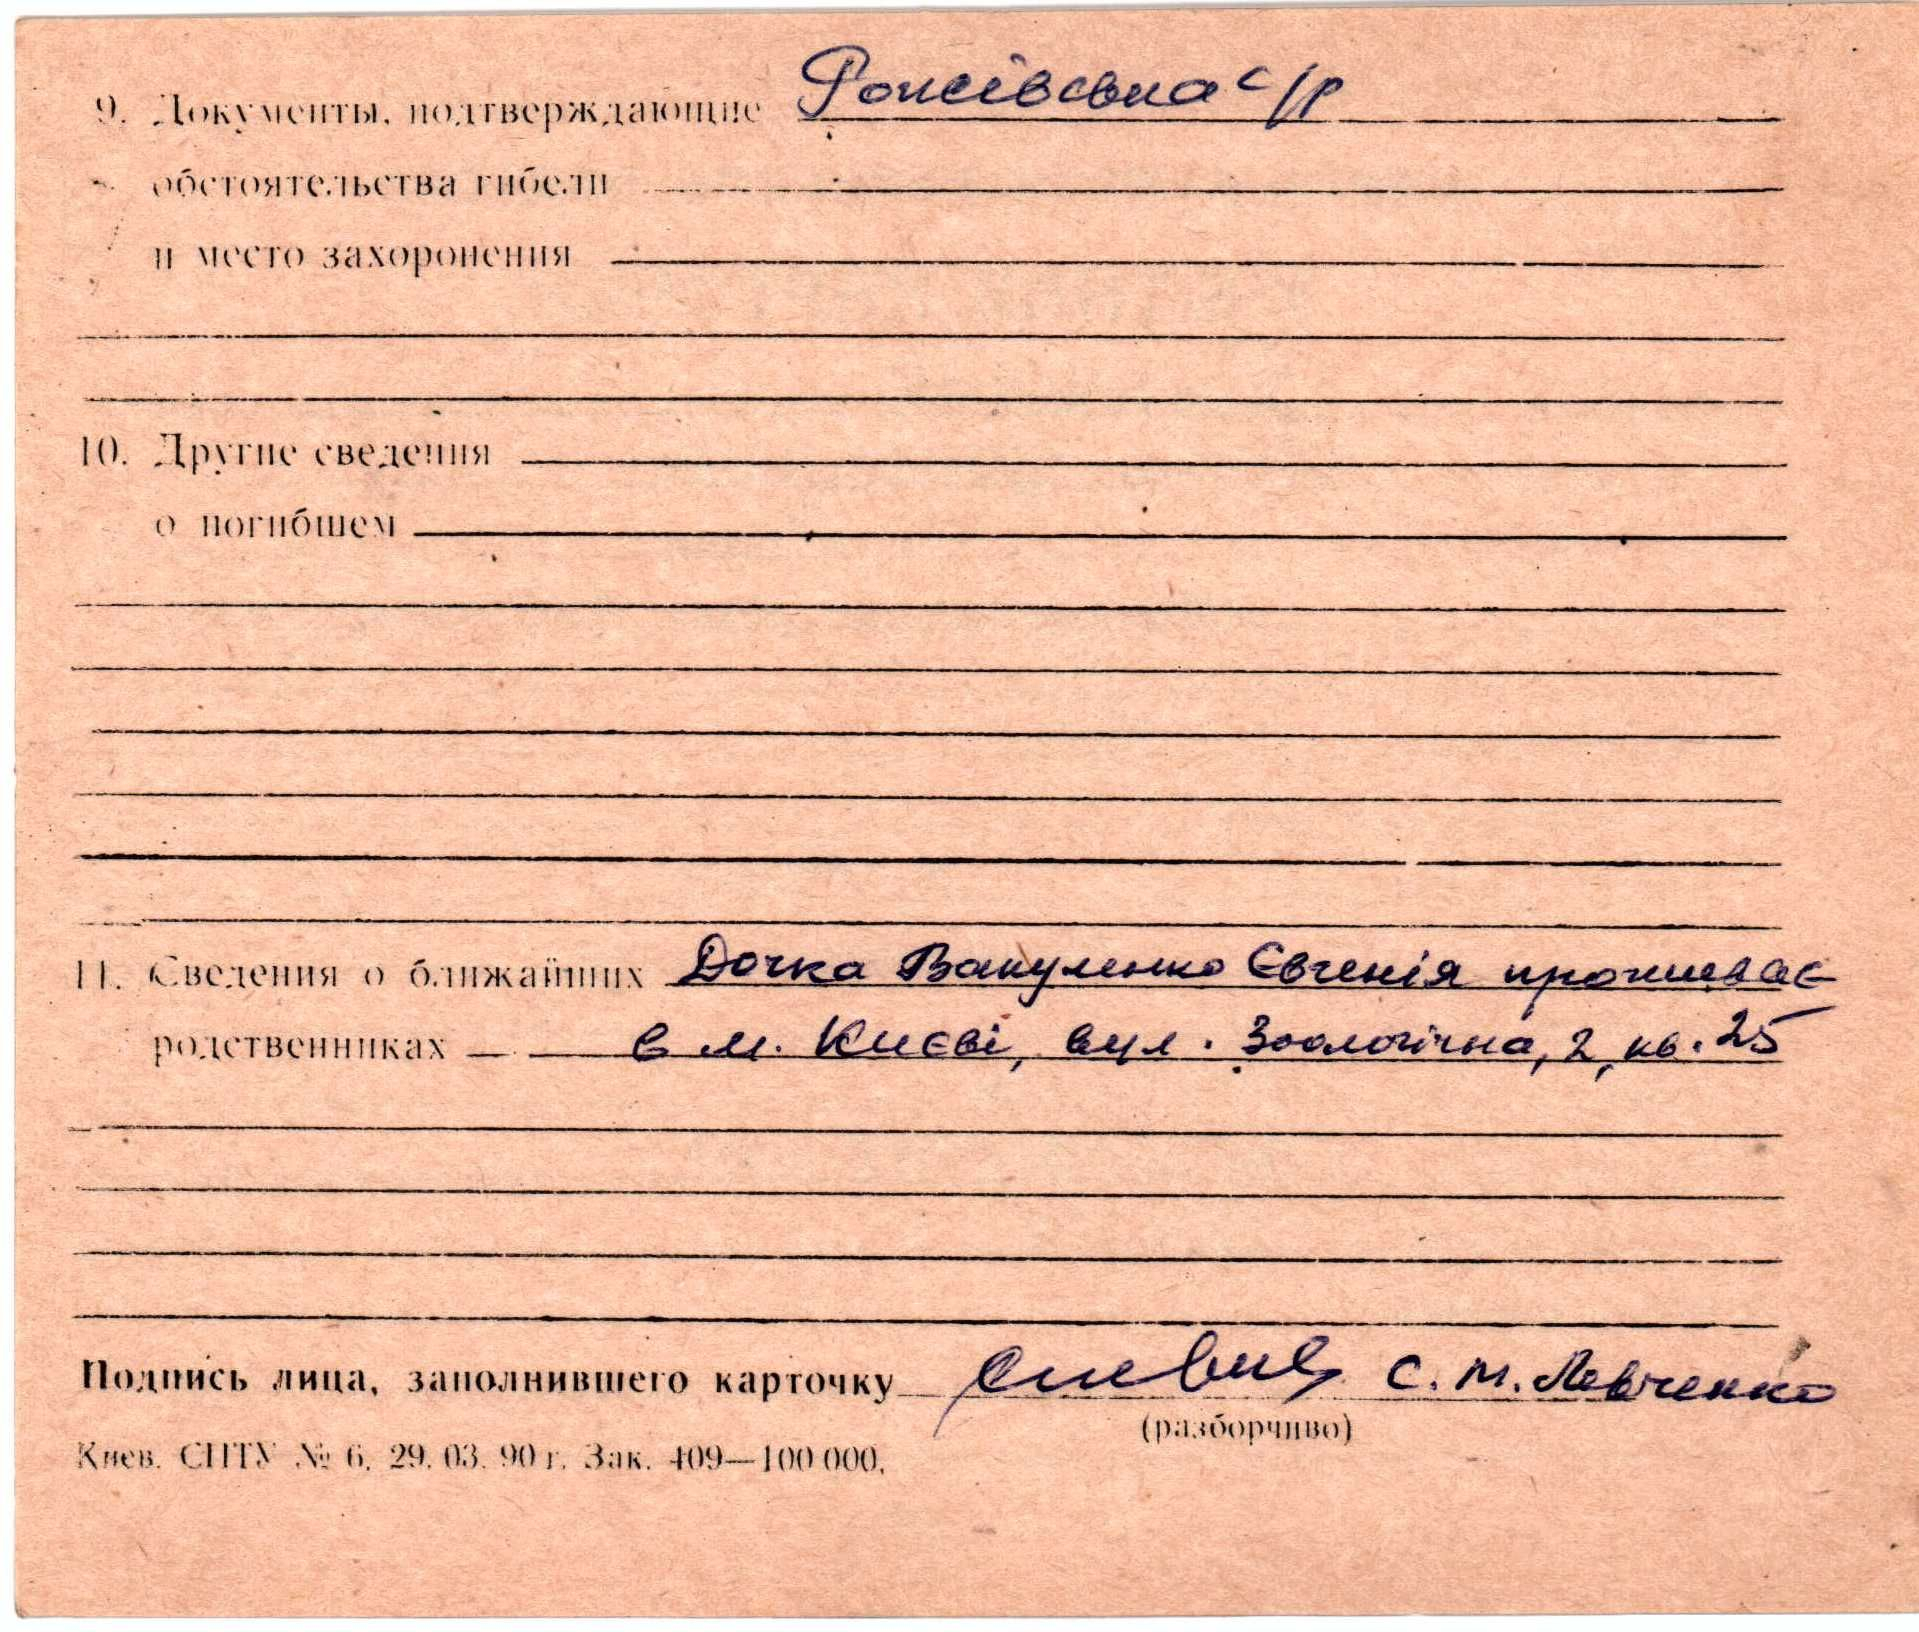 9. Документы, подтверждающие Рожівська с/р
обстоятельства гибели
и место захоронения
10. Другие сведения
о погибшем
11. Сведения о ближайших Дочка Вакуленко Євгенія проживає
родственниках в м. Києві, вул. Зоологічна, 2, кв. 25
Подпись лица, заполнившего карточку С. М. Левченко
(разборчиво)
Киев. СПТУ № 6. 29. 03. 90 г. Зак. 409—100 000.